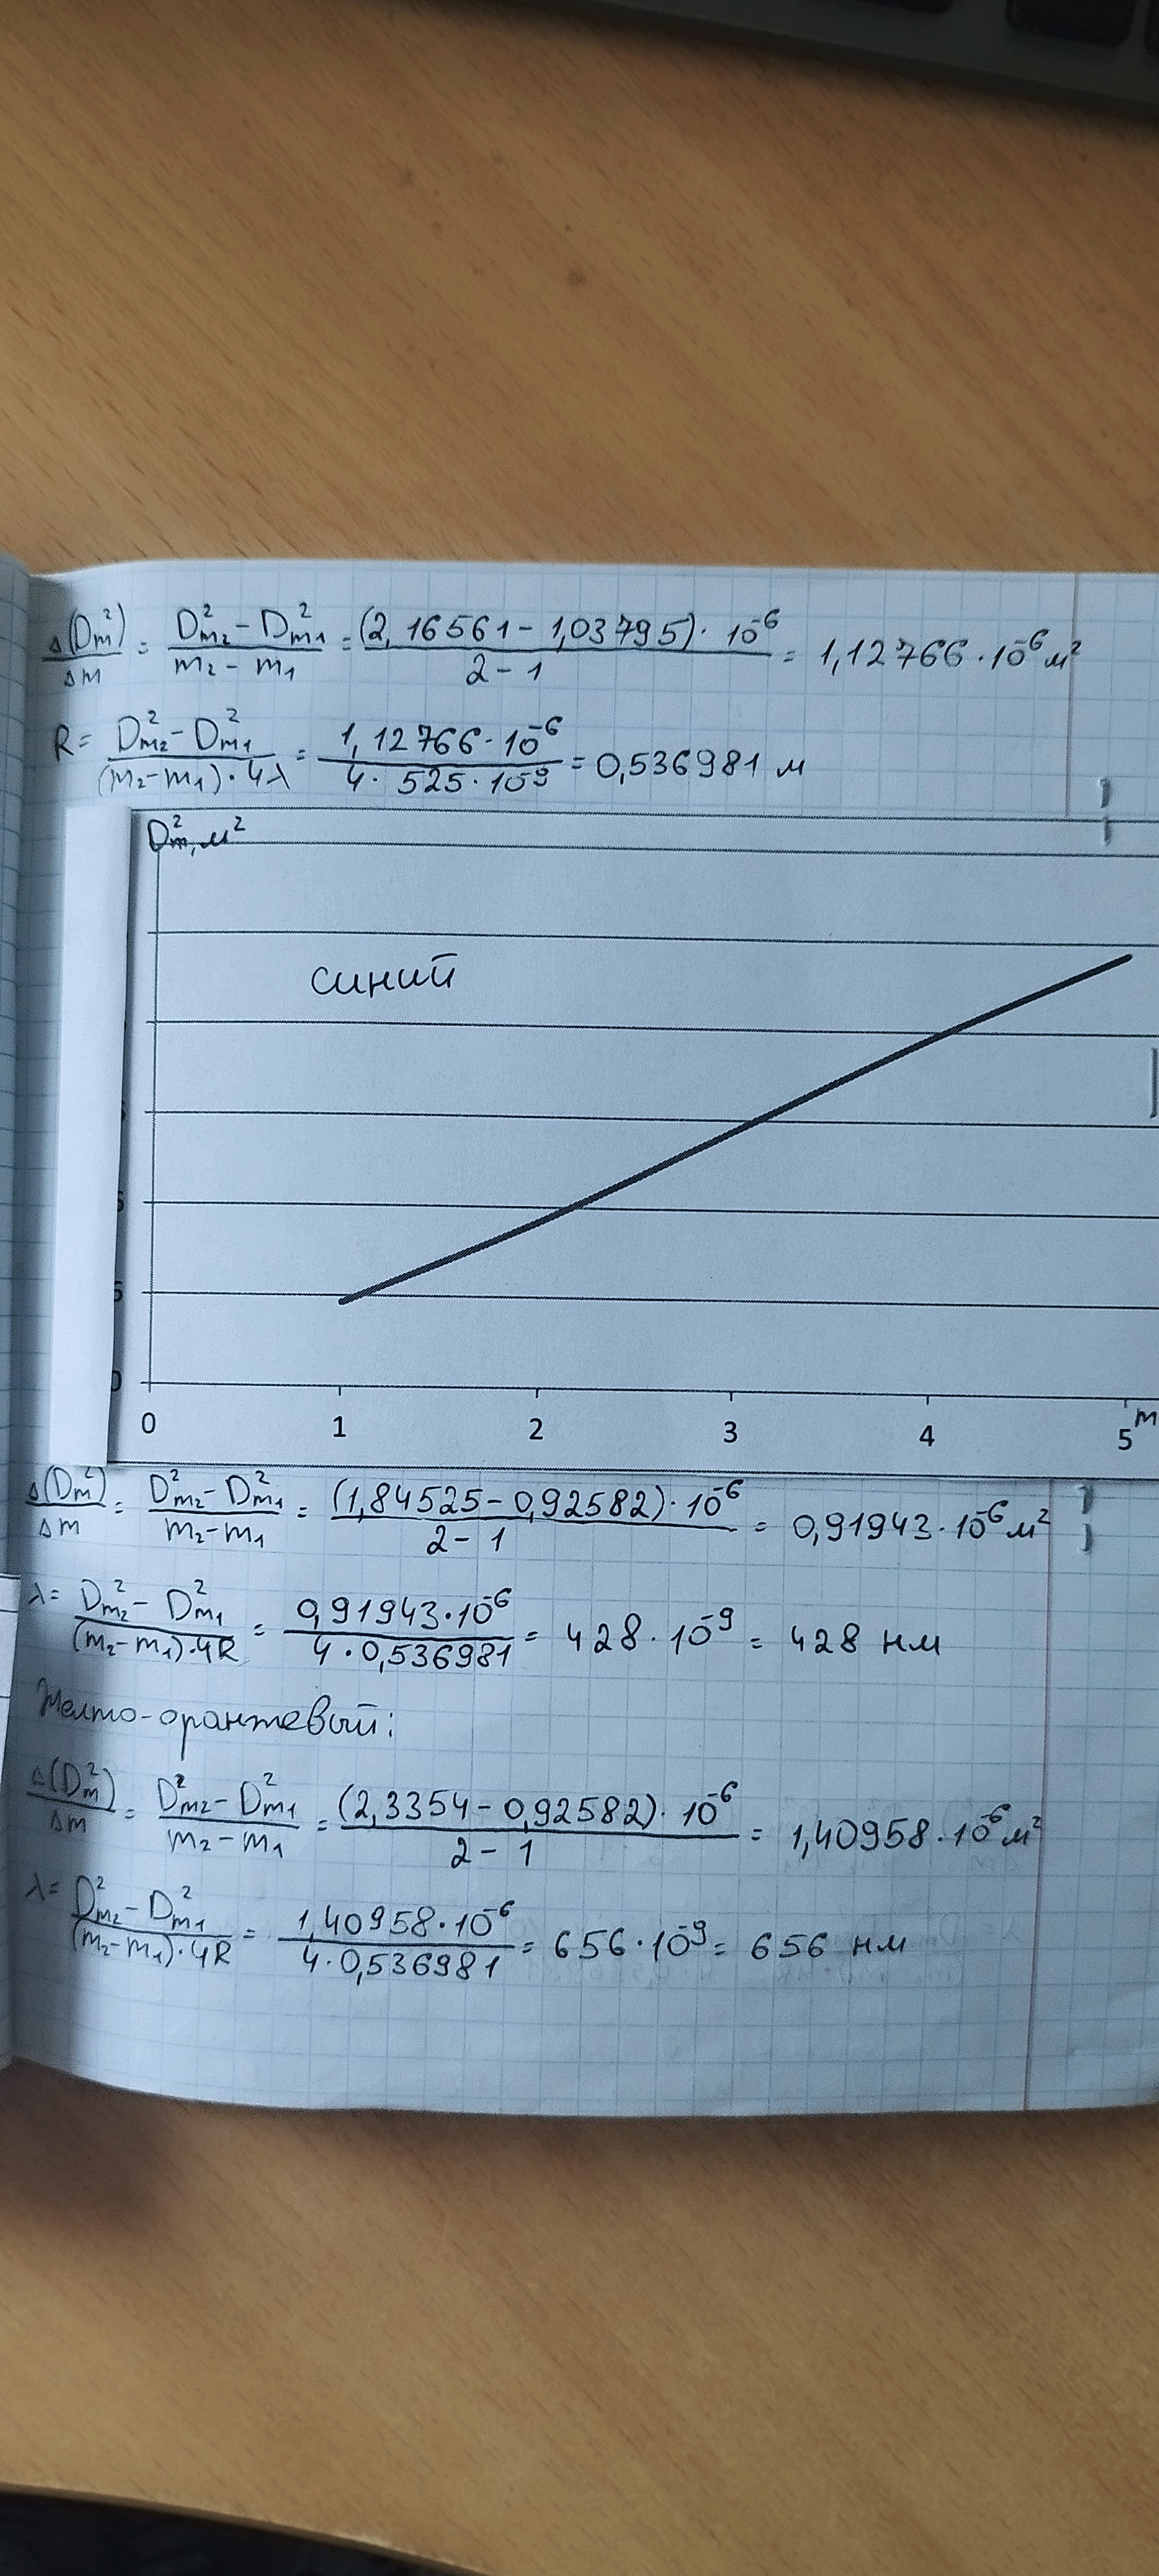 Δ(Dm²)/Δm = (Dm₂² - Dm₁²)/(m₂ - m₁) = (2,16561 - 1,03795)·10⁻⁶/(2 - 1) = 1,12766·10⁻⁶ м²
R = (Dm₂² - Dm₁²)/((m₂ - m₁)·4λ) = 1,12766·10⁻⁶/(4·525·10⁻⁹) = 0,536981 м
Dm², м²
синий
5
5
5
0
0 1 2 3 4 5 m
Δ(Dm²)/Δm = (Dm₂² - Dm₁²)/(m₂ - m₁) = (1,84525 - 0,92582)·10⁻⁶/(2 - 1) = 0,91943·10⁻⁶ м²
λ = (Dm₂² - Dm₁²)/((m₂ - m₁)·4R) = 0,91943·10⁻⁶/(4·0,536981) = 428·10⁻⁹ = 428 нм
Желто-оранжевый:
Δ(Dm²)/Δm = (Dm₂² - Dm₁²)/(m₂ - m₁) = (2,3354 - 0,92582)·10⁻⁶/(2 - 1) = 1,40958·10⁻⁶ м²
λ = (Dm₂² - Dm₁²)/((m₂ - m₁)·4R) = 1,40958·10⁻⁶/(4·0,536981) = 656·10⁻⁹ = 656 нм